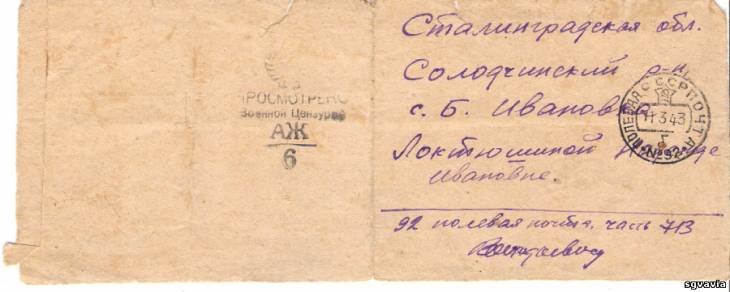 ПРОСМОТРЕНО
Военной Цензурой
АЖ
6
Сталинградская обл.
Солодчинский р-н
с. Б. Ивановка
Локтюшиной
Ивановне.
ПОЛЕВАЯ СССР ПОЧТА
11 3 43
№92
92 полевая почта, часть 713
sgvavia